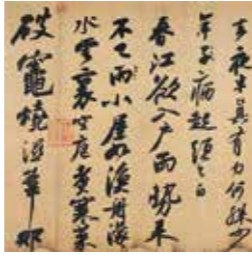 夜半真有力何殊少
年子病起須已白
春江欲入户雨勢来
不已雨小屋如漁舟濛
水雲裏空庖煮寒菜
破竈燒濕葦那